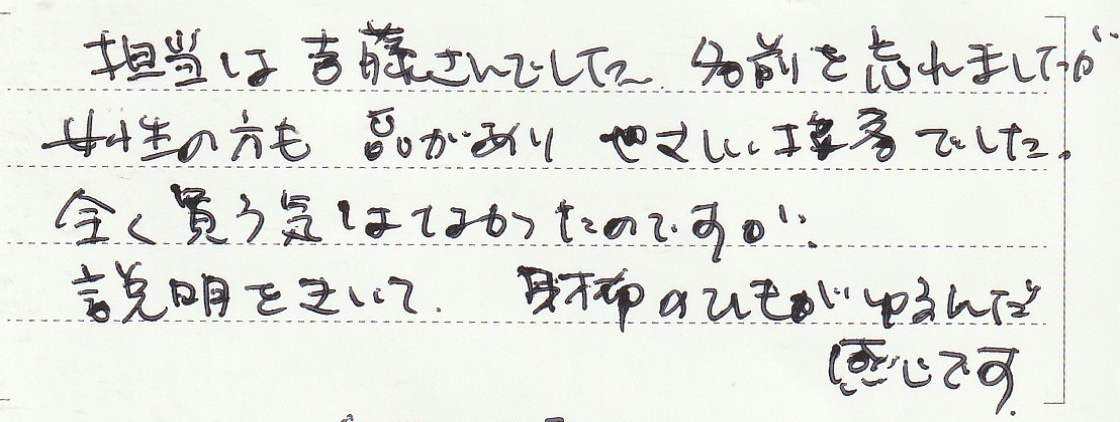 担当は吉藤さんでした 名前を忘れましたが
女性の方も 品があり やさしい接客でした。
全く買う気はなかったのですが、
説明をきいて、財布のひもがゆるんだ
感じです。